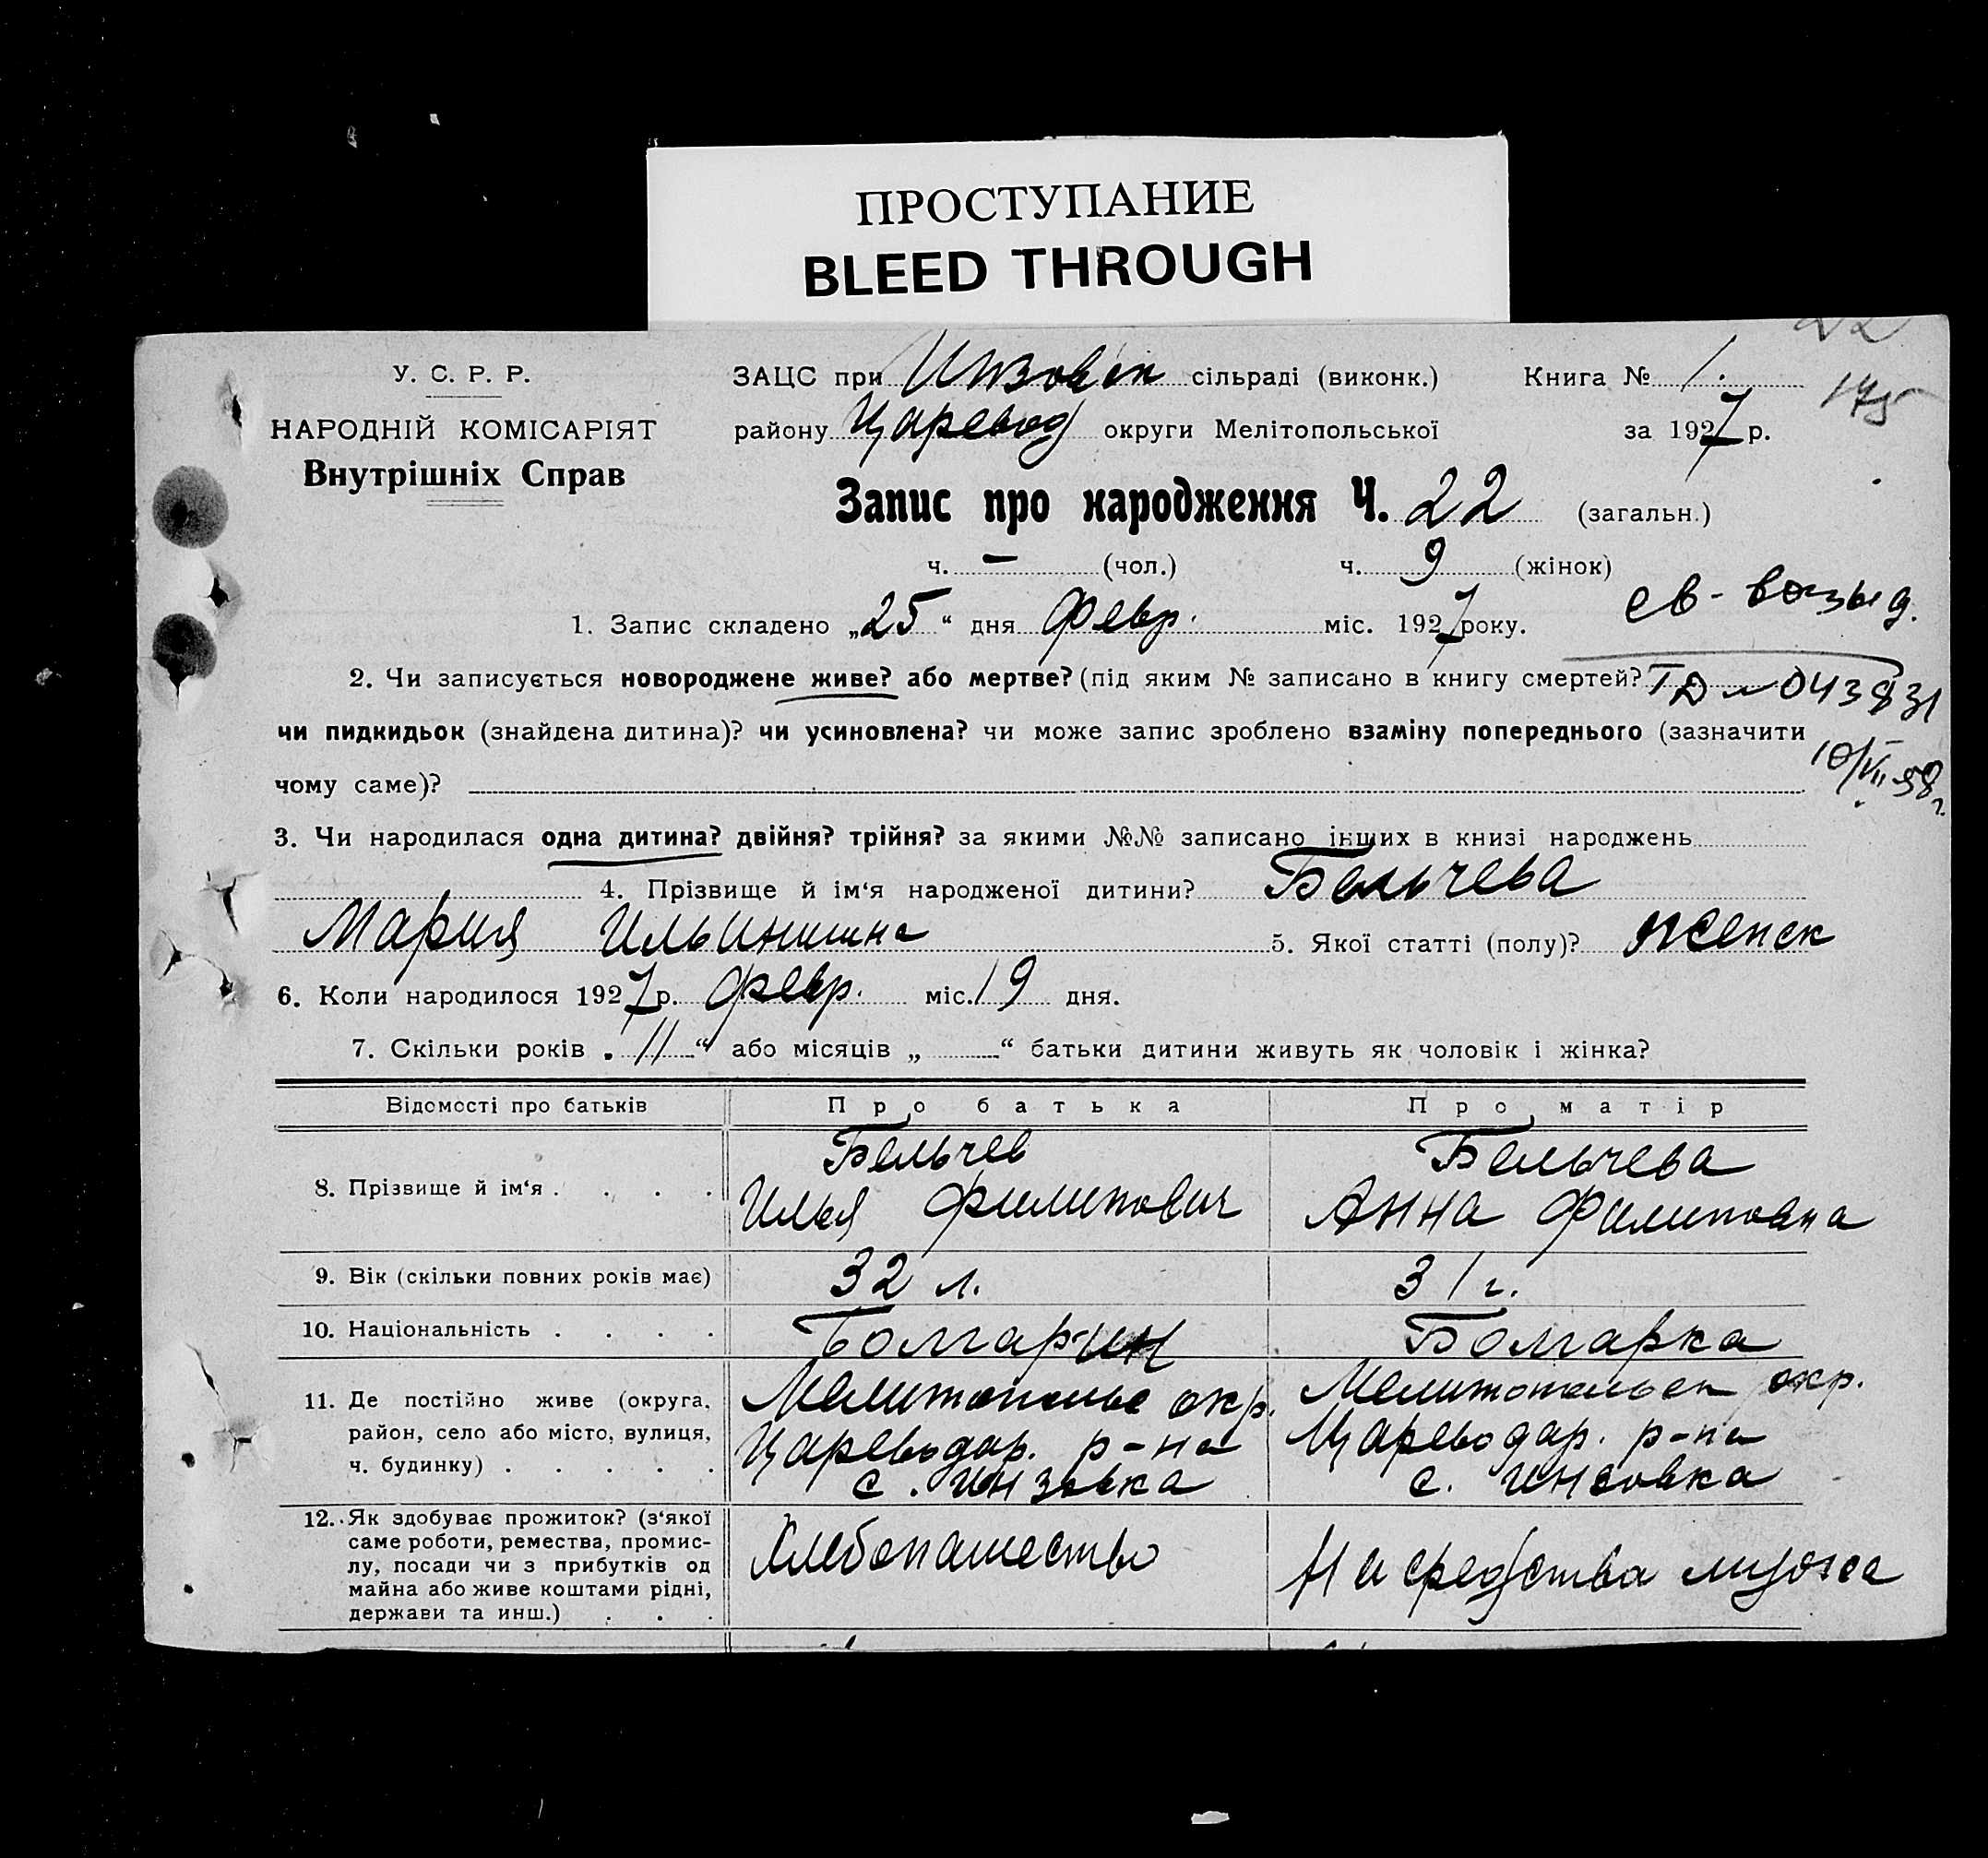 ПРОСТУПАНИЕ
BLEED THROUGH
22
У. С. Р. Р.
НАРОДНІЙ КОМІСАРІЯТ
Внутрішніх Справ
ЗАЦС при Инзовск сільраді (виконк.) Книга № 1.
175
району Царевод округи Мелітопольської за 1927 р.
Запис про народження Ч. 22 (загальн.)
ч. — (чол.) ч. 9 (жінок)
св-
1. Запис складено „25“ дня февр. міс. 1927 року.
2. Чи записується новороджене живе? або мертве? (під яким № записано в книгу смертей?
043831
чи пидкидьок (знайдена дитина)? чи усиновлена? чи може запис зроблено взаміну попереднього (зазначити
чому саме)?
10/VII-58г.
3. Чи народилася одна дитина? двійня? трійня? за якими №№ записано інших в книзі народжень
4. Прізвище й ім‘я народженої дитини? Бельчева
Мария Ильинишна 5. Якої статті (полу)? женск
6. Коли народилося 1927 р. февр. міс. 19 дня.
7. Скільки років „11“ або місяців „ “ батьки дитини живуть як чоловік і жінка?
Відомості про батьків Про батька Про матір
8. Прізвище й ім‘я . . . .
Бельчев
Илья Филипович
Бельчева
Анна Филиповна
9. Вік (скільки повних років має) 32 л. 31 г.
10. Національність . . . . Болгарин Болгарка
11. Де постійно живе (округа,
район, село або місто, вулиця,
ч. будинку) . . . . .
Мелитопольс окр.
Цареводар. р-на
с. Инзовка
Мелитопольск окр.
Цареводар. р-на
с. Инзовка
12. Як здобуває прожиток? (з‘якої
саме роботи, ремества, промис-
лу, посади чи з прибутків од
майна або живе коштами рідні,
держави та инш.) . . .
Хлебопашество
На средства мужа